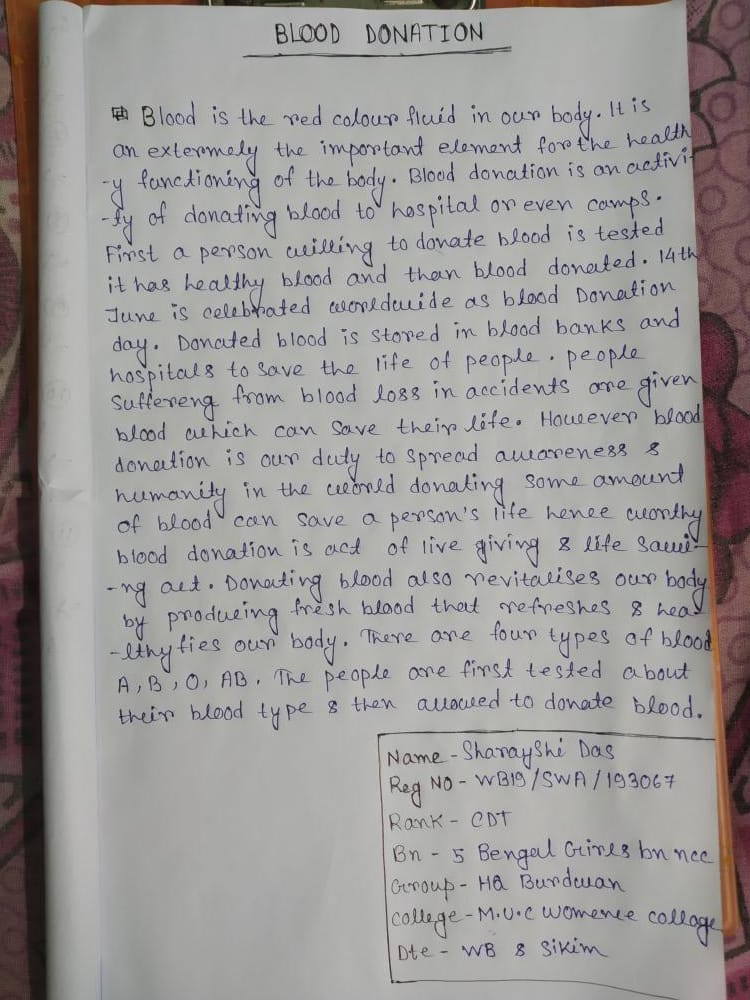 BLOOD DONATION
Blood is the red colour fluid in our body. It is
an extermely the important element for the health
-y functioning of the body. Blood donation is an activi-
-ty of donating blood to hospital or even camps.
First a person willing to donate blood is tested
it has healthy blood and than blood donated. 14th
June is celebrated worldwide as blood Donation
day. Donated blood is stored in blood banks and
hospitals to save the life of people. people
suffereng from blood loss in accidents are given
blood which can save their life. However blood
donation is our duty to spread awareness &
humanity in the world donating some amount
of blood can save a person's life hence worthy
blood donation is act of live giving & life savi-
-ng act. Donating blood also revitalises our body
by producing fresh blood that refreshes & hea-
-lthyfies our body. There are four types of blood
A, B, O, AB. The people are first tested about
their blood type & then allowed to donate blood.
Name - Sharayshi Das
Reg NO - WB19/SWA/193067
Rank - CDT
Bn - 5 Bengal Girls bn ncc
Group - HQ Burdwan
College - M.U.C womene collage
Dte - WB & Sikim